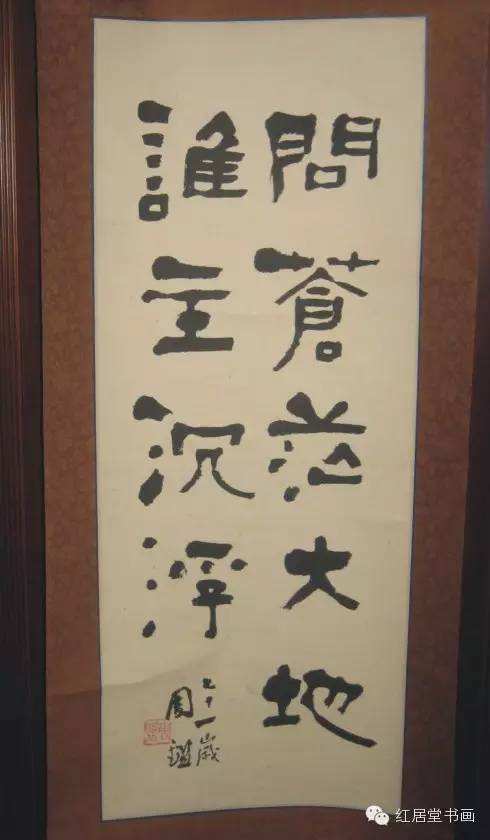 問蒼茫大地
誰主沉浮
七十一歲
红居堂书画